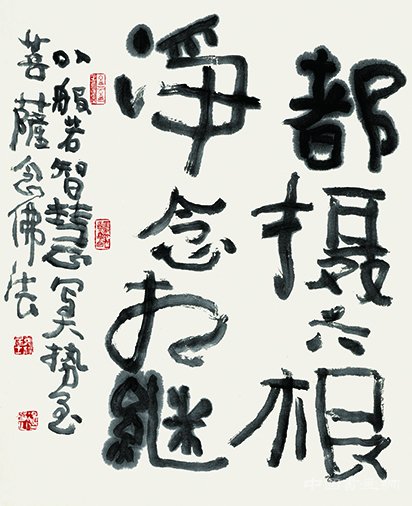 都摄六根
淨念相継
以般若智慧写大势至
菩薩念佛法